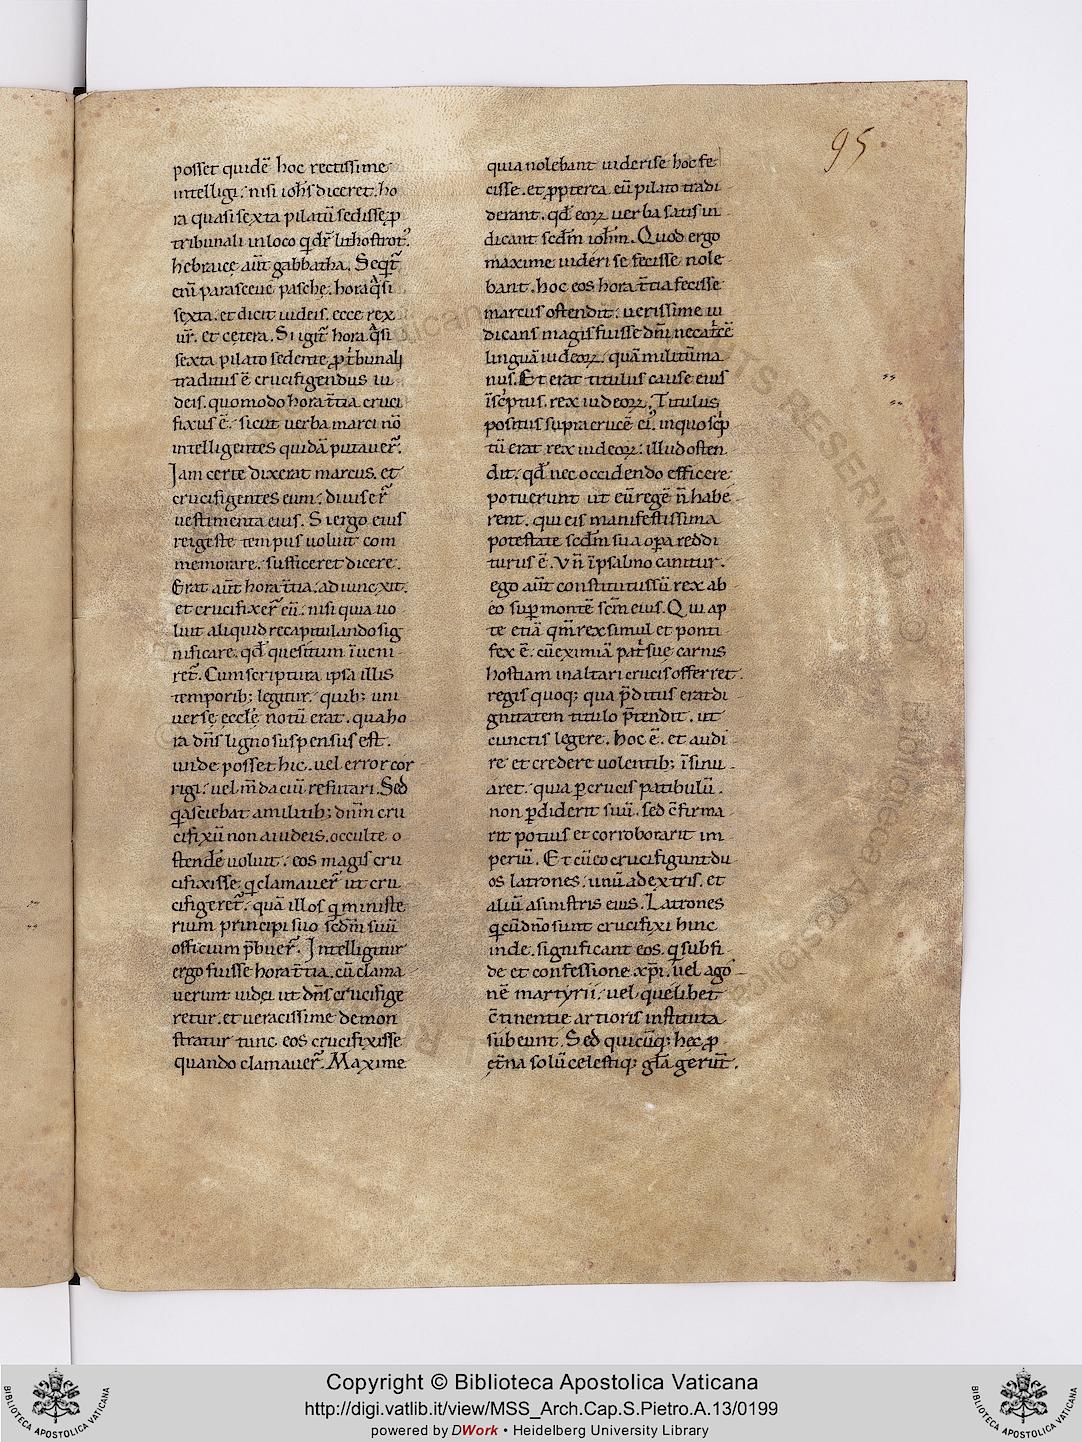 95
posset quidē hoc rectissime
intelligi. nisi ioh̅s diceret. ho
ra quasi sexta pilatū sedisse ꝓ
tribunali in loco q̇ dr̅ lithostrot᷒.
hebraice aut̅ gabbatha. Seqt̅
eni̅ parasceue paschę. hora q̇si
sexta. et dicit iudeis. ecce rex
ur̅. et cetera. Si igit̅ hora q̇si
sexta pilato sedente ꝓ ṫbunali
traditus ē crucifigendus iu
deis. quomodo hora t̅tia cruci
fixus ē. sicut uerba marci nō
intelligentes quidā putauer̅.
Iam certe dixerat marcus. et
crucifigentes eum. diuiser̅
uestimenta eius. Si ergo eius
rei gestę tempus uoluit com
memorare. sufficeret dicere.
Erat aut̅ hora t̅tia. adiuncxit.
et crucifixer̅ eū. nisi quia uo
luit aliquid recapitulando sig
nificare. qd̅ quesitum īueni
ret̅. Cum scriptura ipsa illis
temporib; legitur. quib; uni
uersę eccl̅e notū erat. qua ho
ra dn̅s ligno suspensus est.
unde posset hic. uel error cor
rigi. uel m̅daciū refutari. Sed
q̇a sciebat a militib; dn̅m cru
cifixū non a iudeis. occulte o
stende̅ uoluit. eos magis cru
cifixisse. q̇ clamauer̅ ut cru
cifigeret̅. quā illos q̇ ministe
rium principi suo scd̅m suū
officium p̅buer̅. Intelligitur
ergo fuisse hora t̅tia. cū clama
uerunt iudęi ut dn̅s crucifige
retur. et ueracissime demon
stratur tunc eos crucifixisse
quando clamauer̅. Maxime
quia nolebant uideri se hoc fe
cisse. et ꝓpterea eū pilato tradi
derant. qd̅ eoꝝ uerba satis in
dicant scd̅m ioh̅m. Quod ergo
maxime uideri se fecisse nole
bant. hoc eos hora t̅tia fecisse
marcus ostendit. uerissime iu
dicans magis fuisse dn̅i necatcē
linguā iudeoꝝ. quā militū ma
nus. Et erat titulus cause eius
īsċptus. rex iudeoꝝ. Titulus
positus supra crucē ei᷒. in quo sċp
tū erat rex iudeoꝝ. illud osten
dit. qd̅ nec occidendo efficere
potuerunt ut eū regē n̅ habe
rent. qui eis manifestissima
potestate scd̅m sua oꝑa reddi
turus ē. Vn̅ ī psalmo canitur.
ego aut̅ constitutus sū rex ab
eo suꝑ montē scm̅ eius. Qui ap
te etiā qm̅ rex simul et ponti
fex ē. cū eximiā pat̅ suę carnis
hostiam in altari crucis offerret.
regis quoq; qua p̅ditus erat di
gnitatem titulo p̅tendit. ut
cunctis legere. hoc ē. et audi
re et credere uolentib; īsinu
aret. quia ꝑ crucis patibulū.
non ꝑdiderit suū. sed c̅firma
rit potius et corroborarit im
periū. Et cū eo crucifigunt du
os latrones. unū a dextris. et
aliū a sinistris eius. Latrones
q̇ cū dn̅o sunt crucifixi hinc
inde. significant eos. q̇ sub fi
de et confessione xp̅i. uel ago
nē martyrii. uel quelibet
c̅tinentie artioris instituta
subeunt. Sed quicūq; hęc ꝓ
ęt̅na solū celestiq; gl̅a gerut̅.
Copyright © Biblioteca Apostolica Vaticana
http://digi.vatlib.it/view/MSS_Arch.Cap.S.Pietro.A.13/0199
powered by DWork • Heidelberg University Library
BIBLIOTECA APOSTOLICA VATICANA
BIBLIOTECA APOSTOLICA VATICANA